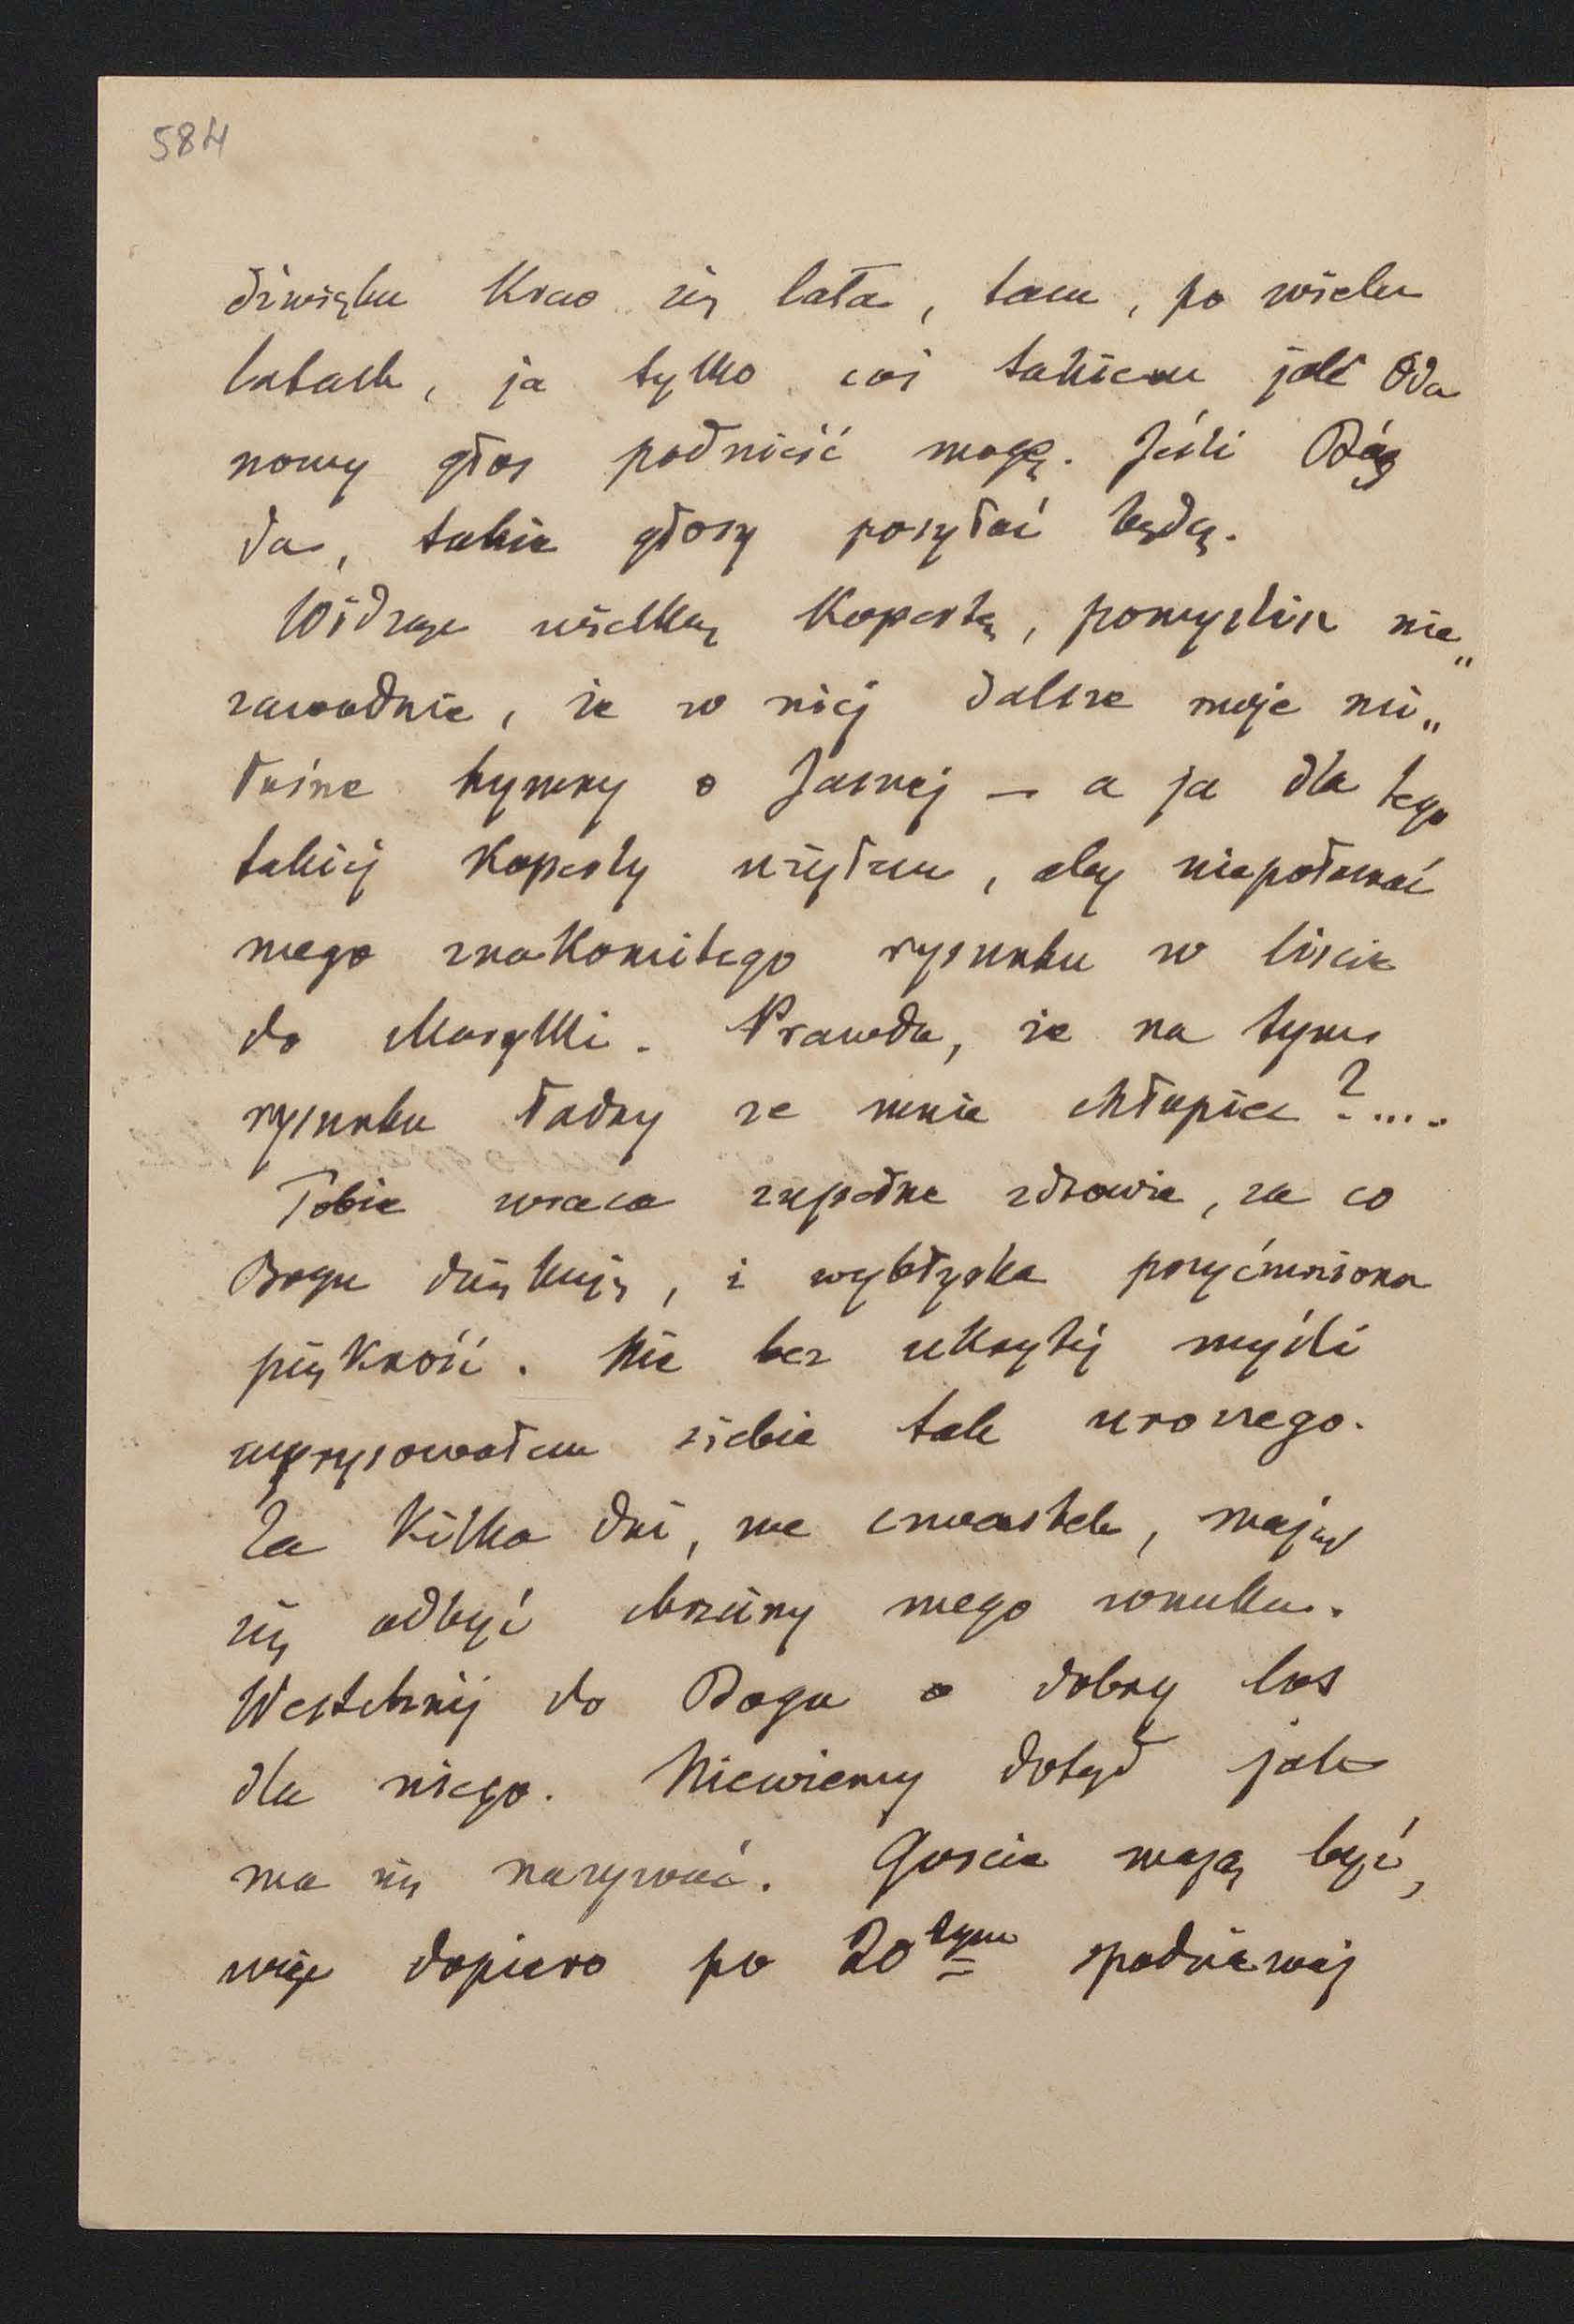 584
dźwięku krew się lała, tam, po wielu
latach, ja tylko coś takiem jak Oda
nowy głos podnieść mogę. Jeśli Bóg
da, takie głosy posyłać będę.
Widząc wielką kopertę, pomyślisz nie„
zawodnie, że w niej dalsze moje mi„
łośne hymny o Jasnej — a ja dla tego
takiej koperty użyłem, aby niepołamać
mego znakomitego rysunku w liście
do Marylki. Prawda, że na tym
rysunku ładny ze mnie chłopiec?....
Tobie wraca zupełne zdrowie, za co
Bogu dziękuję, i wybłyska przyćmiona
piękność. Nie bez ukrytej myśli
wyrysowałem siebie tak uroczego.
Za kilka dni, we czwartek, mają
się odbyć chrzciny mego wnuka.
Westchnij do Boga o dobry los
dla niego. Niewiemy dotąd jak
ma się nazywać. Goście mają być,
więc dopiero po 20tym spodziewaj